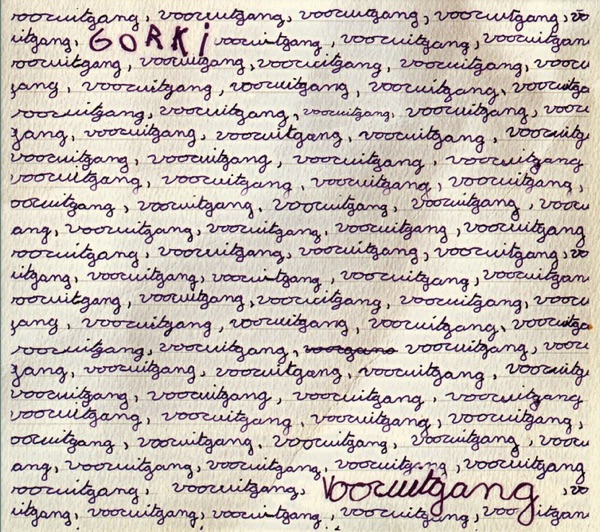 vooruitgang, vooruitgang, vooruitgang, vooruitgang, vo
uitgang, GORKI vooruitgang, vooruitgang, vooruitgan
vooruitgang, vooruitgang, vooruitgang, vooruitgang, vooru
gang, vooruitgang, vooruitgang, vooruitgang, vooruitga
vooruitgang, vooruitgang, vooruitgang, vooruitgang, vooru
gang, vooruitgang, vooruitgang, vooruitgang, vooruitg
vooruitgang, vooruitgang, vooruitgang, vooruitgang
vooruitgang, vooruitgang, vooruitgang, vooruitgang,
ooruitgang, vooruitgang, vooruitgang, vooruitgang, voou
ang, vooruitgang, vooruitgang, vooruitgang, vooruitgang
vooruitgang, vooruitgang, vooruitgang, vooruitgang, vo
uitgang, vooruitgang, vooruitgang, vooruitgang, vooruitgan
vooruitgang, vooruitgang, vooruitgang, vooruitgang, vooru
gang, vooruitgang, vooruitgang, vooruitgang, vooruitga
vooruitgang, vooruitgang, vooruitgang, vooru
gang, vooruitgang, vooruitgang, vooruitgang, vooruitg
vooruitgang, vooruitgang, vooruitgang, vooruitgang
vooruitgang, vooruitgang, vooruitgang, vooruitgang,
ooruitgang, vooruitgang, vooruitgang, vooruitgang, voou
ang, vooruitgang, vooruitgang, vooruitgang, vooruitgang
vooruitgang, vooruitgang, Vooruitgang, vo
uitgang, vooruitgang, vooruitgang, voo itgang